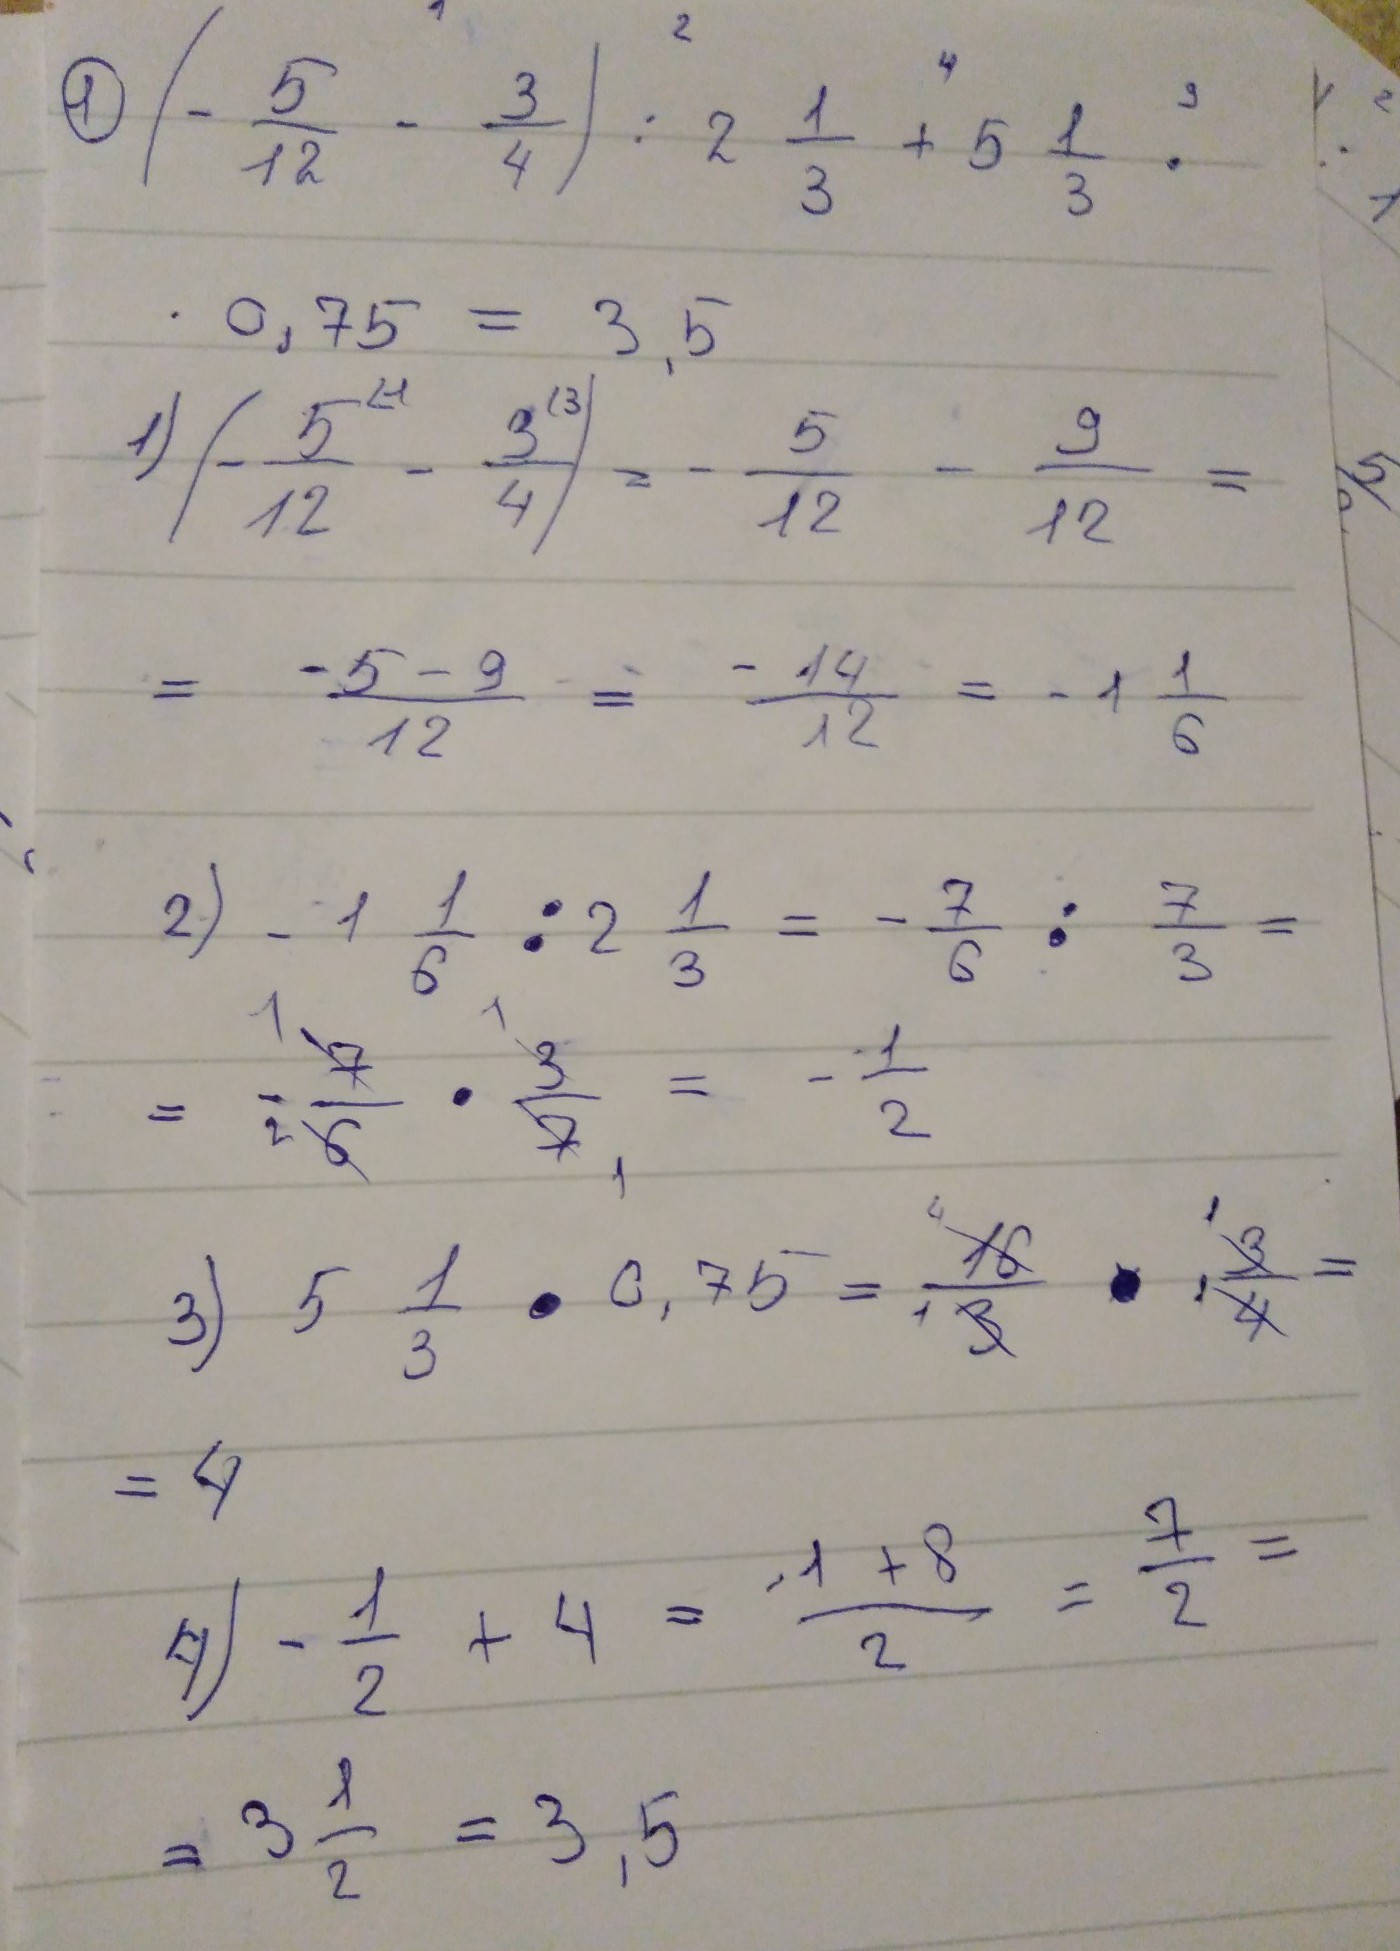 1 2 4 3
① (- 5/12 - 3/4) : 2 1/3 + 5 1/3 ·
· 0,75 = 3,5
1) (- 5/12 - 3/4 (3) = - 5/12 - 9/12 =
= -5-9/12 = -14/12 = -1 1/6
2) -1 1/6 : 2 1/3 = - 7/6 : 7/3 =
= - 7/6 · 3/7 = - 1/2
3) 5 1/3 · 0,75 = 16/3 · 3/4 =
= 4
4) - 1/2 + 4 = -1+8/2 = 7/2 =
= 3 1/2 = 3,5